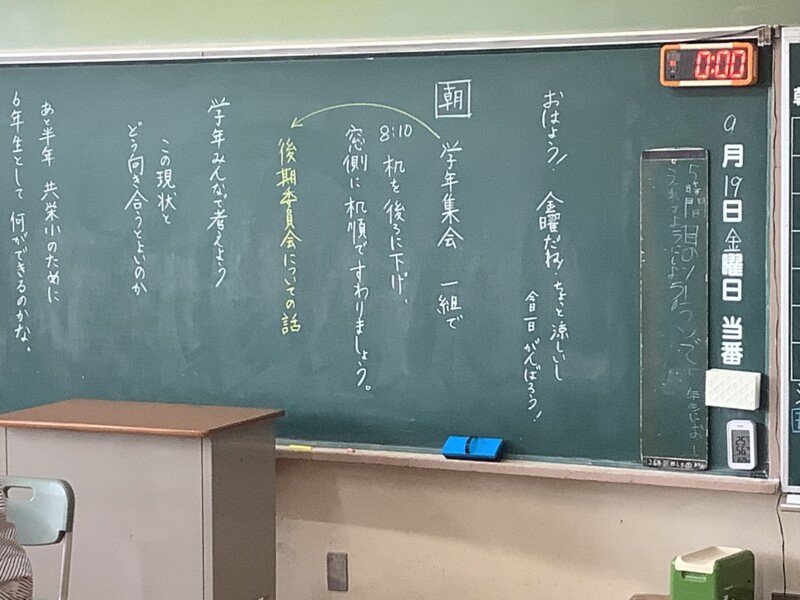 0:00
9月19日金曜日 当番
おはよう! 金曜だね!ちょっと涼しいし
今日一日がんばろう!
朝
学年集会 一組で
8:10 机を後ろに下げ、
窓側に机順ですわりましょう。
後期委員会についての話
学年みんなで考えよう
この現状と
どう向き合うとよいのか
あと半年 共栄小のために
6年生として 何ができるのかな。